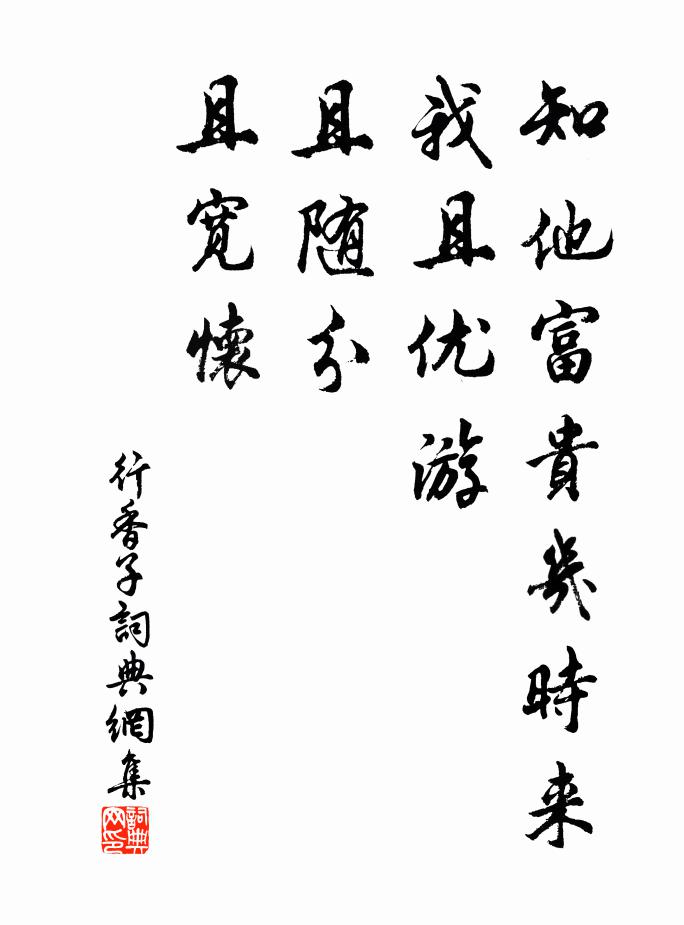 知他富貴幾時来
我且优游
且随分
且寛懷
行香子詞典網集
詞典
网印